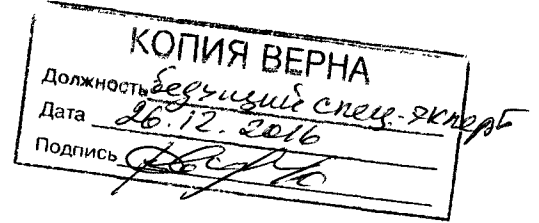 КОПИЯ ВЕРНА
Должность ведущий спец-эксперт
Дата 26.12.2016
Подпись